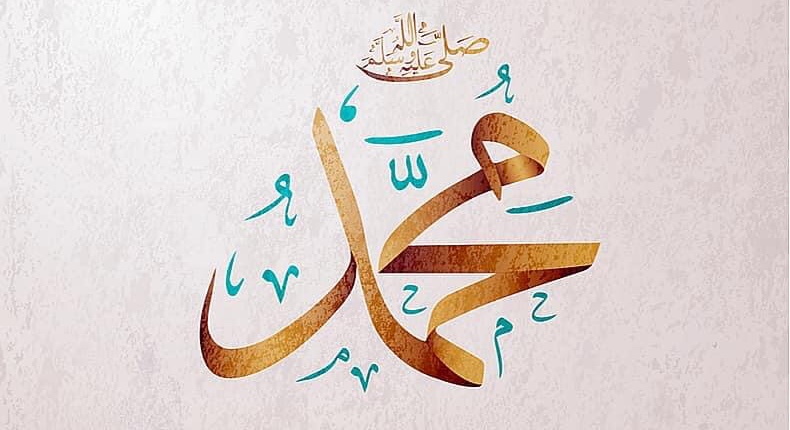 صَلَّى اللَّهُ عَلَيْهِ وَسَلَّمَ
مُحَمَّد